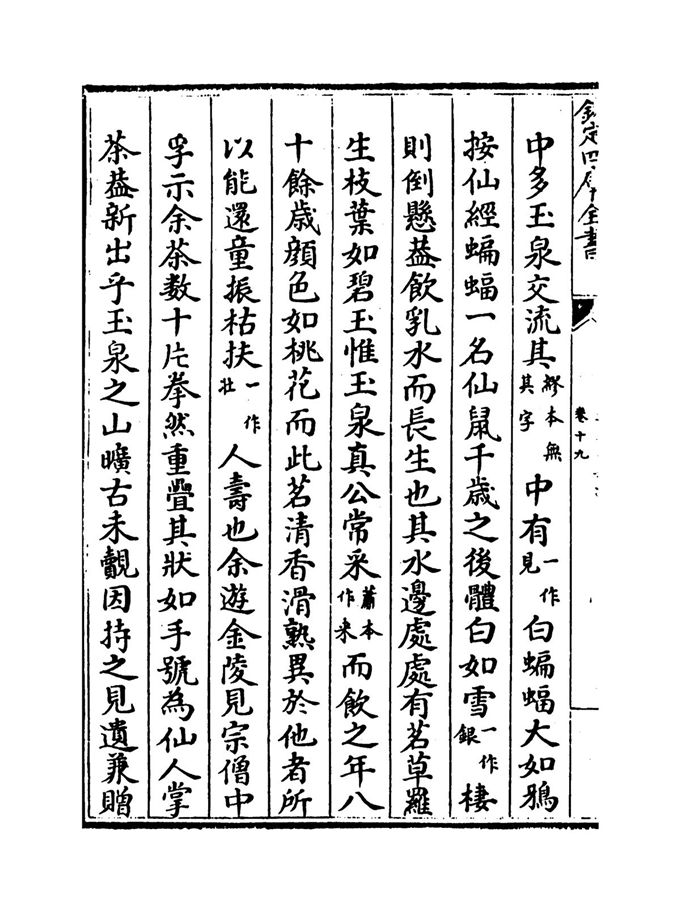 欽定四庫全書
卷十九
中多玉泉交流其繆本無其字中有一作見白蝙蝠大如鴉
按仙經蝙蝠一名仙鼠千歲之後體白如雪一作銀棲
則倒懸葢飲乳水而長生也其水邊處處有茗草羅
生枝葉如碧玉惟玉泉真公常采蕭本作来而飲之年八
十餘歲顔色如桃花而此茗清香滑熟異於他者所
以能還童振枯扶一作壯人壽也余遊金陵見宗僧中
孚示余茶數十片拳然重疊其狀如手號為仙人掌
茶葢新出乎玉泉之山曠古未覿因持之見遺兼贈